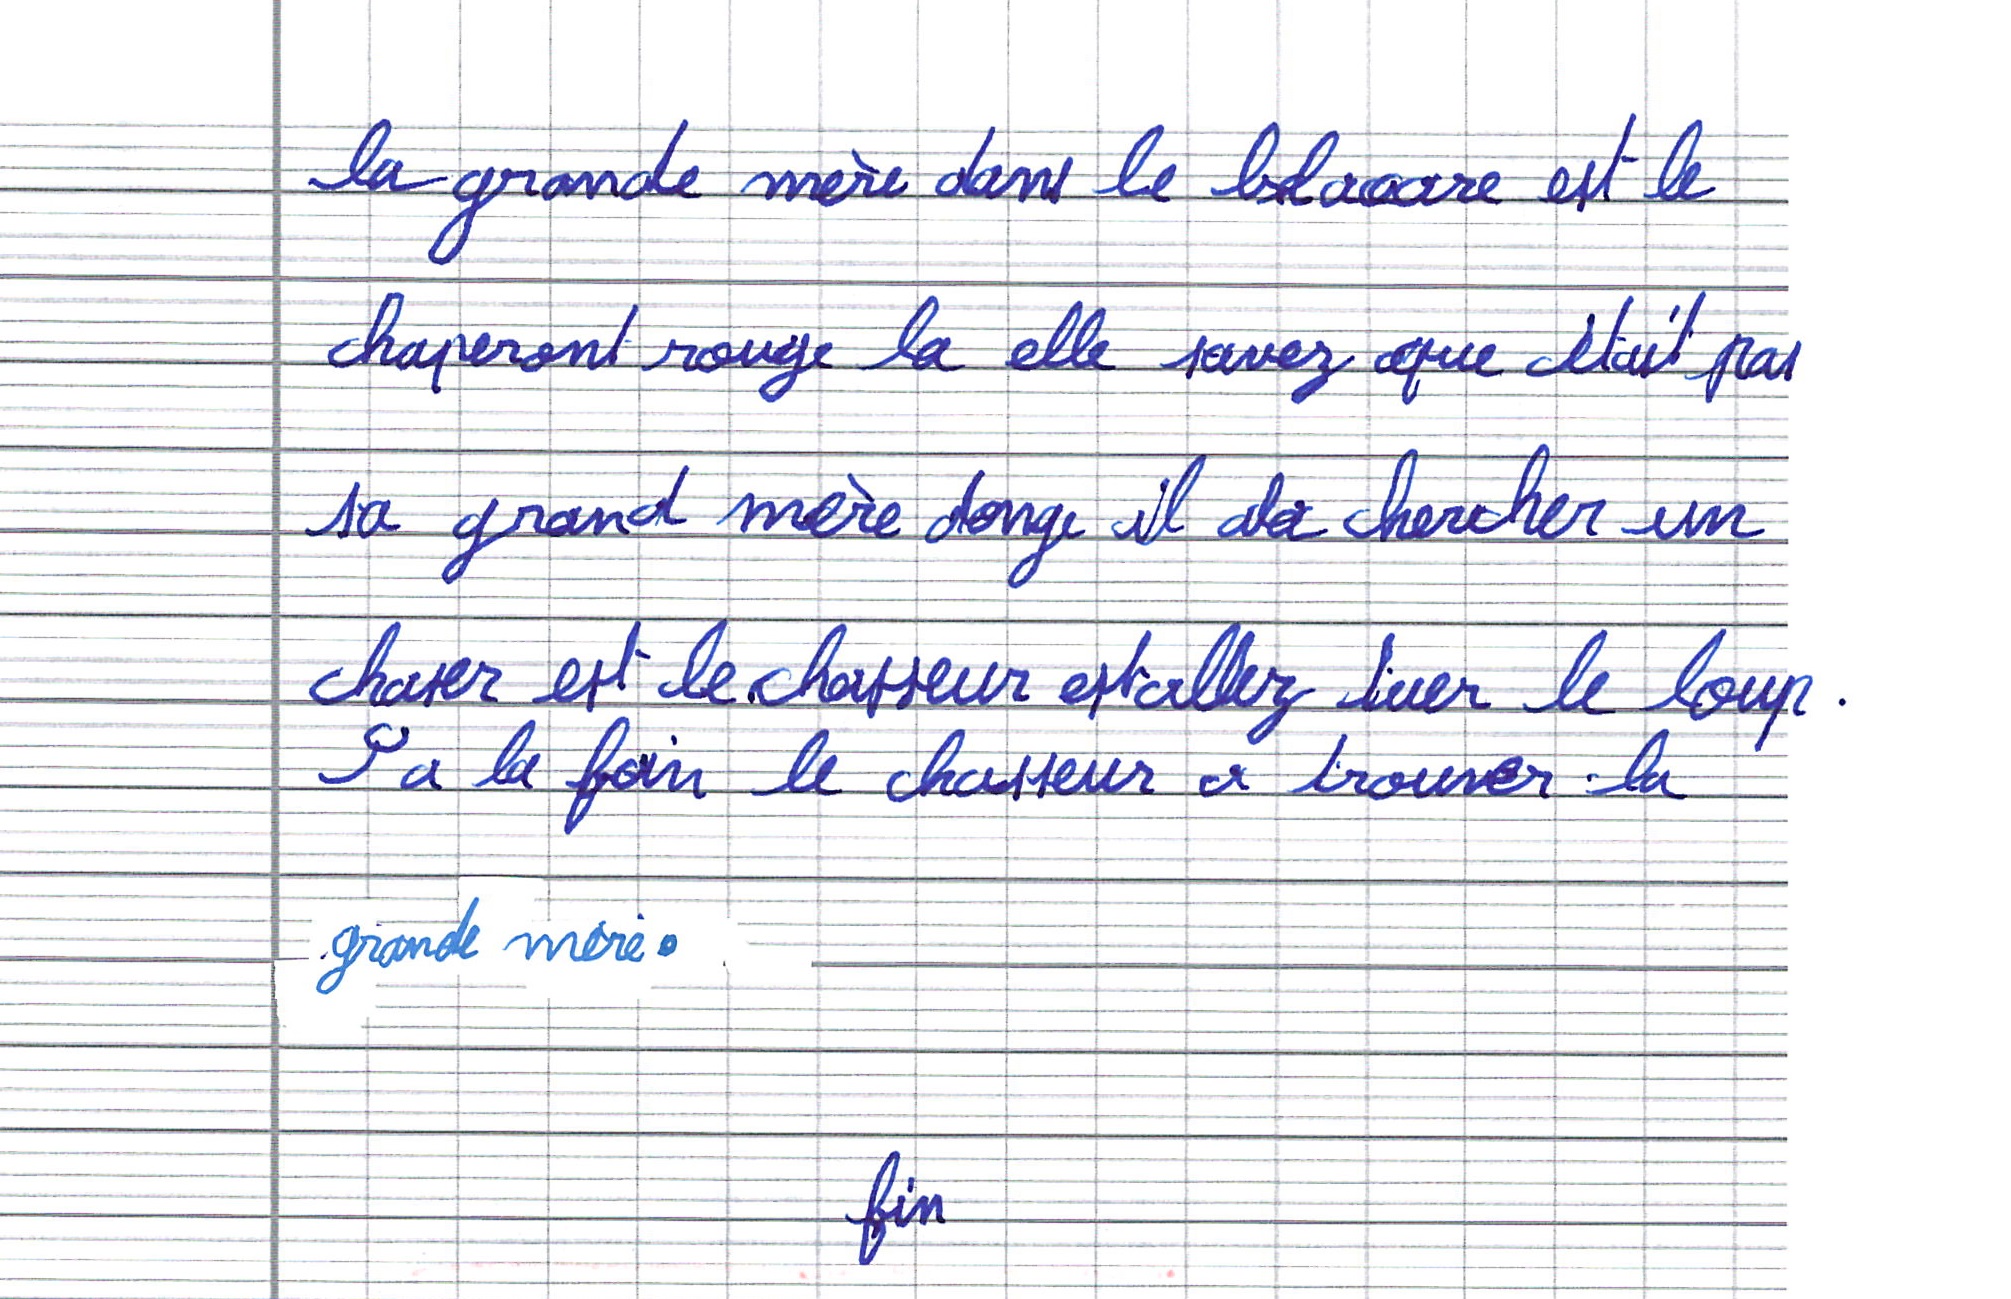 la grande mère dans le est le
chaperont rouge la elle savez que c'était pas
sa grand mère donge il a chercher un
chaser est le chasseur est allez tuer le loup.
a la foin le chasseur a trouver la
grande mère.
fin